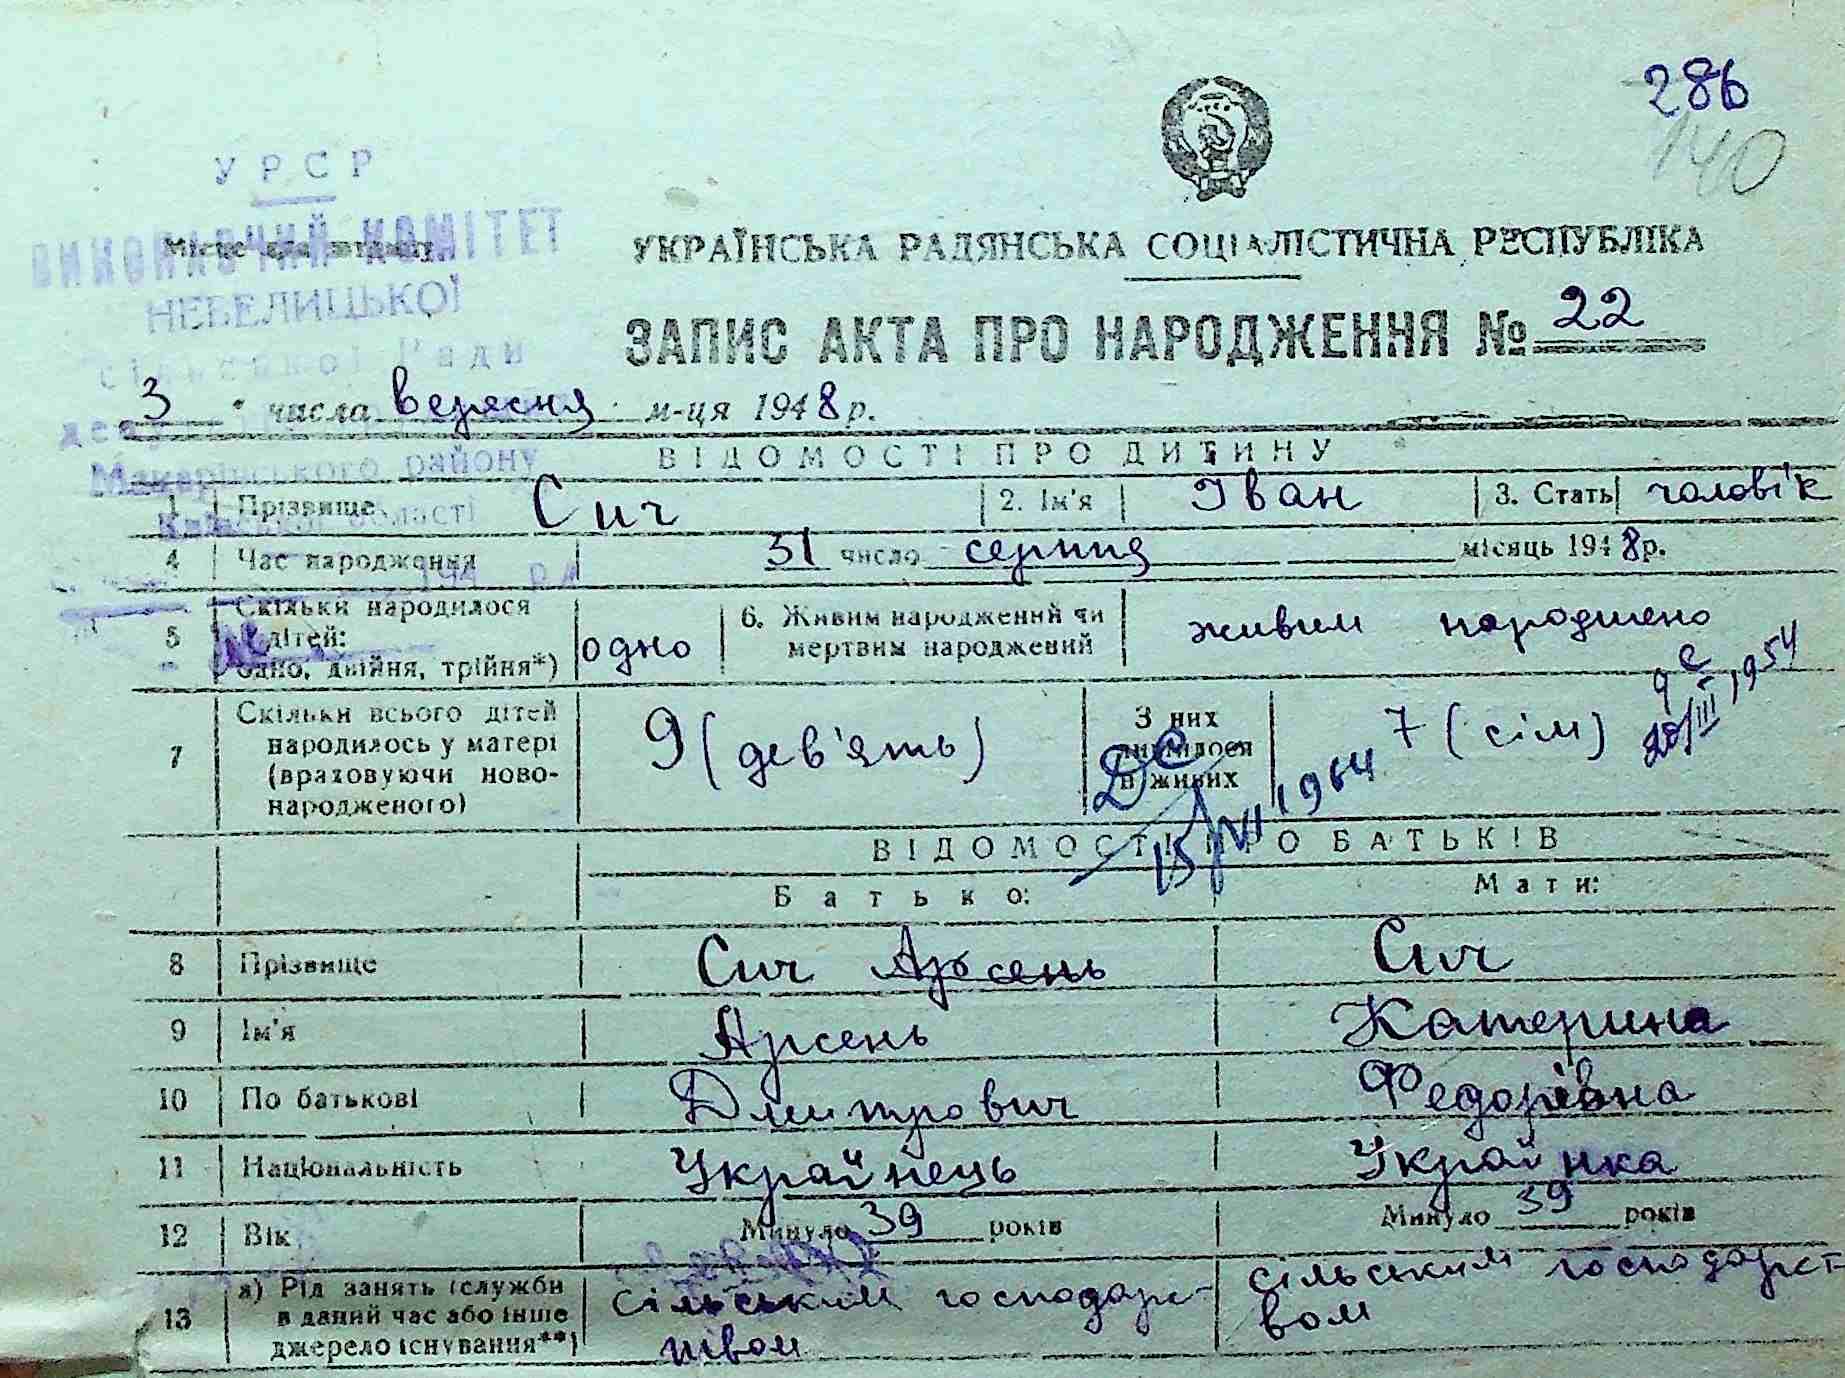 286
140
У Р С Р
ВИКОНАВЧИЙ КОМІТЕТ
Місце для штампу
НЕБЕЛИЦЬКОЇ
сільської Ради
Макарівського району
Київської області
УКРАЇНСЬКА РАДЯНСЬКА СОЦІАЛІСТИЧНА РЕСПУБЛІКА
ЗАПИС АКТА ПРО НАРОДЖЕННЯ № 22
3 числа вересня м-ця 1948 р.
ВІДОМОСТІ ПРО ДИТИНУ
1 Прізвище Сич 2. Ім'я Іван 3. Стать чоловік
4 Час народження 31 число серпня місяць 1948 р.
5 Скільки народилося дітей: одно, двійня, трійня*) одно 6. Живим народжений чи мертвим народжений живим народжено
7 Скільки всього дітей народилось у матері (враховуючи новонародженого) 9 (дев'ять) З них лишилося в живих 7 (сім)
20/III 1954
15/VII 1964
ВІДОМОСТІ ПРО БАТЬКІВ
Батько: Мати:
8 Прізвище Сич Арсень Сич
9 Ім'я Арсень Катерина
10 По батькові Дмитрович Федорівна
11 Національність Українець Українка
12 Вік Минуло 39 років Минуло 39 років
13 а) Рід занять (служби в даний час або інше джерело існування**) сільським господарс- сільським господарст-
твом вом